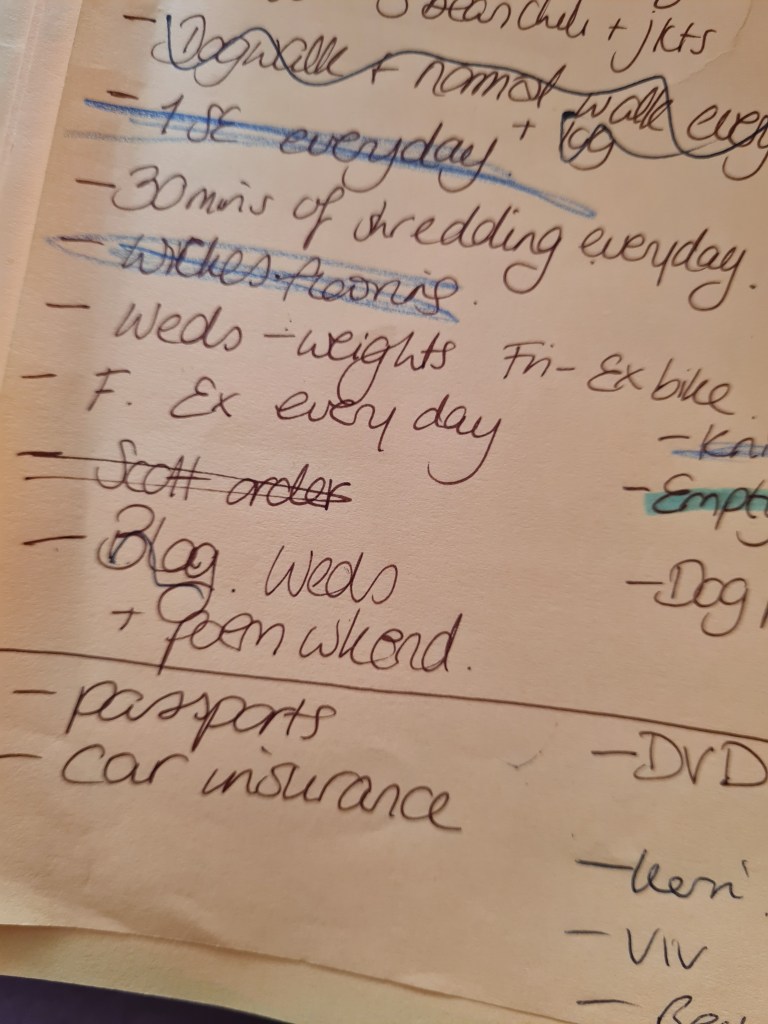 + jkts
- Dogwalk + normal walk every
- 1 SE everyday. + log
- 30mins of shredding everyday.
- Wickes flooring.
- Weds - weights Fri - Ex bike.
- F. Ex every day
- Kni
- Scott order
- Empty
- Blog. Weds
- Dog
+ Poem wkend.
- passports
- DVD
- car insurance
- Keri
- Viv